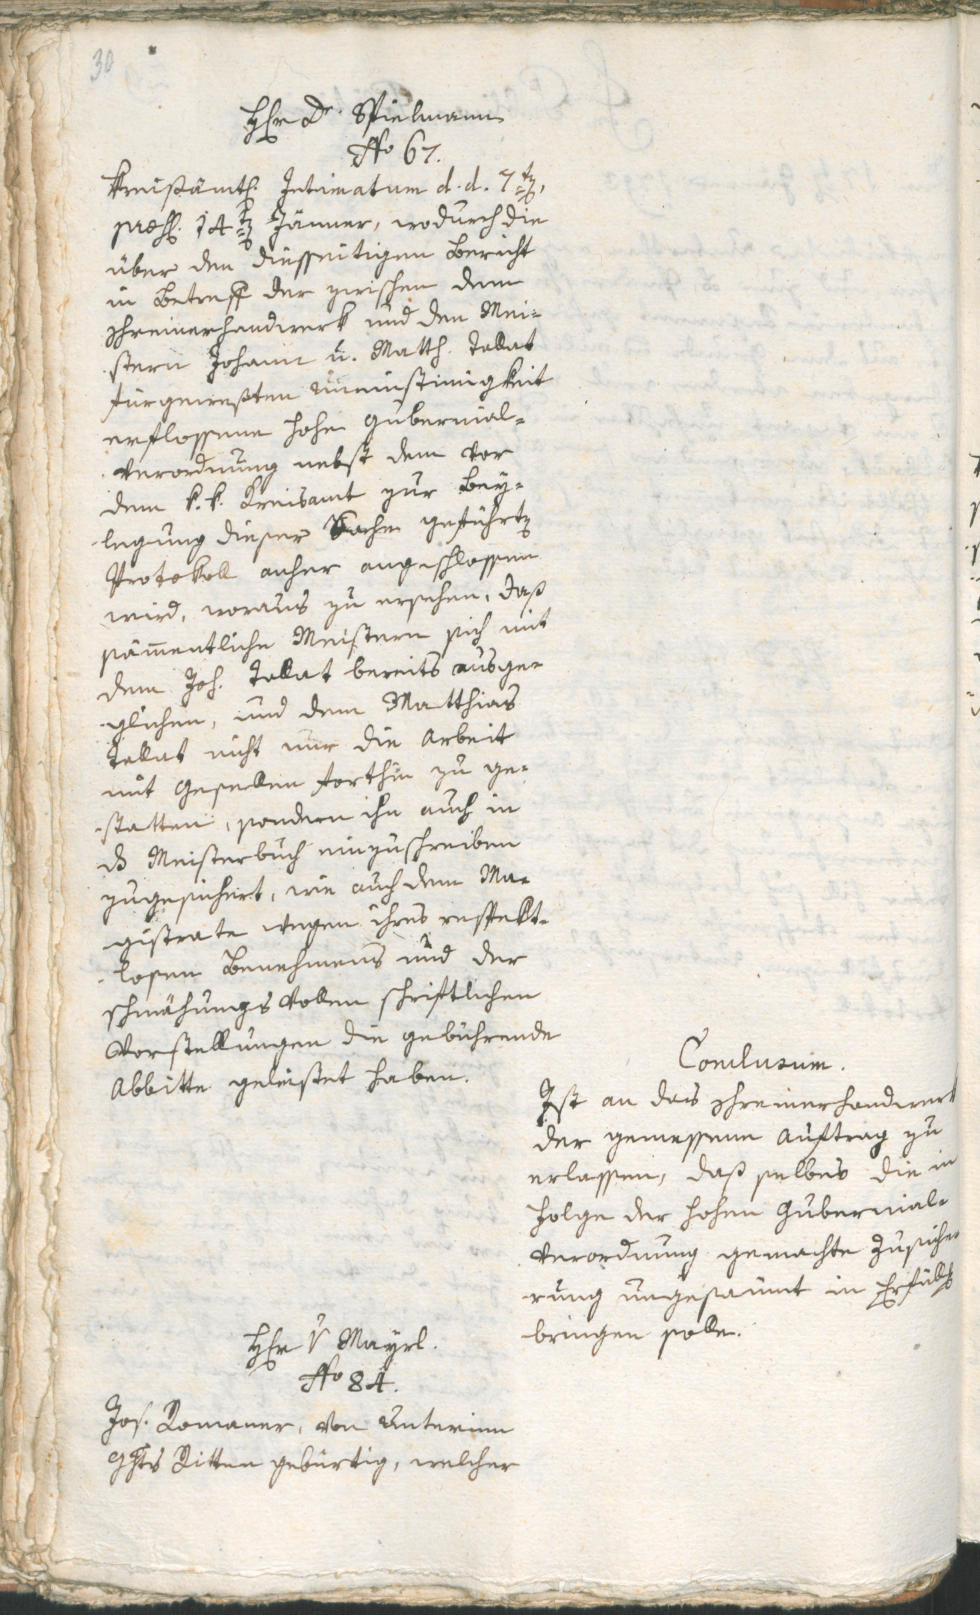 30
Hr Dr. Spielmann
No 67.
Kreisämtl. Intimatum d. d. 7ten,
praes. 14ten Jänner, wodurch die
über den diesseitigen Bericht
in Betreff der zwischen dem
Schreinerhandwerk und den Mei-
stern Johann u. Matth. Tallat
fürgeweßten Uneinstimigkeit
erflossene hohe Gubernial-
Verordnung nebst dem vor
dem k. k. Kreisamt zur Bey-
legung dieser Sache geführten
Protokoll anher angeschlossen
wird, woraus zu ersehen, daß
sämentliche Meistern sich mit
dem Joh. Tallat bereits ausge-
glichen, und dem Matthias
Tallat nicht nur die Arbeit
mit Gesellen forthin zu ge-
statten, sondern ihn auch in
ds Meisterbuch einzuschreiben
zugesichert, wie auch dem Ma-
gistrate wegen ihres respekt-
losen Benehmens und der
schmähungsvollen schriftlichen
Vorstellungen die gebührende
Abbitte geleistet haben.
Conclusum.
Ist an das Schreinerhandwerk
der gemessene Auftrag zu
erlassen, daß selbes die in
Folge der hohen Gubernial-
Verordnung gemachte Zusiche-
rung ungesäumt in Erfüllg
bringen solle.
Hr v Mayrl.
No 84.
Jos. Romaner, von Unterinn
Ghts Ritten gebürtig, welcher